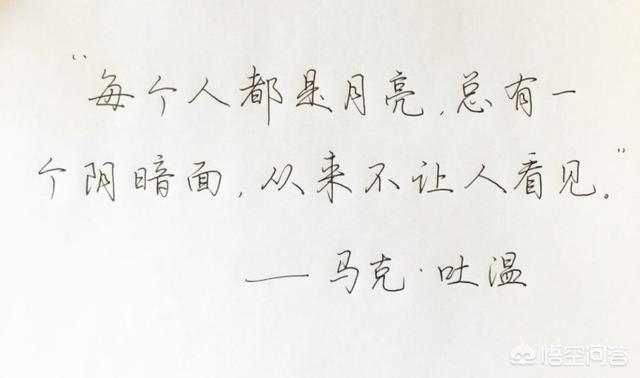 “每个人都是月亮，总有一
个阴暗面，从来不让人看见。”
——马克·吐温
悟空问答